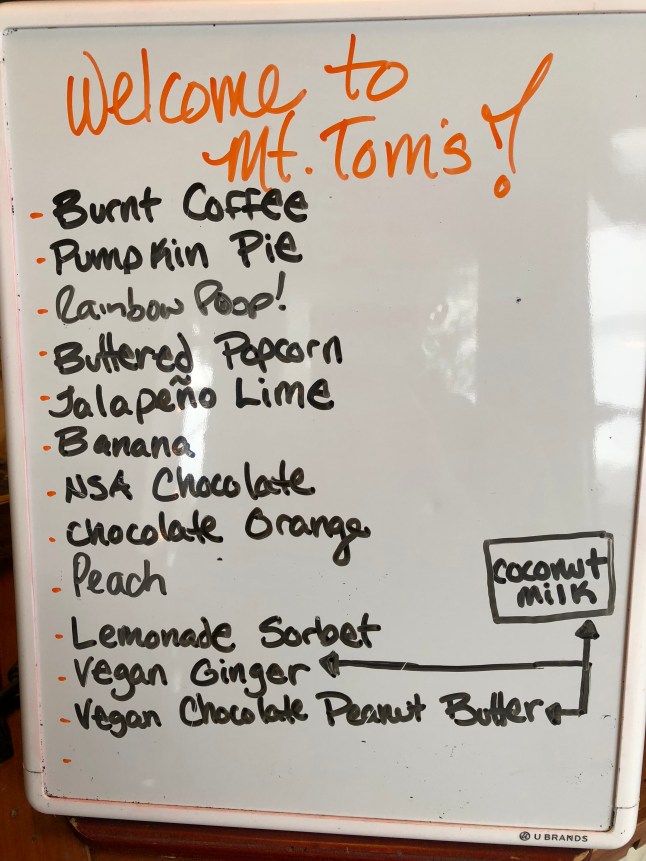 Welcome to
Mt. Tom's!
- Burnt Coffee
- Pumpkin Pie
- Rainbow Poop!
- Buttered Popcorn
- Jalapeño Lime
- Banana
- NSA Chocolate
- Chocolate Orange
- Peach
coconut
milk
- Lemonade Sorbet
- Vegan Ginger
- Vegan Chocolate Peanut Butter
-
U BRANDS